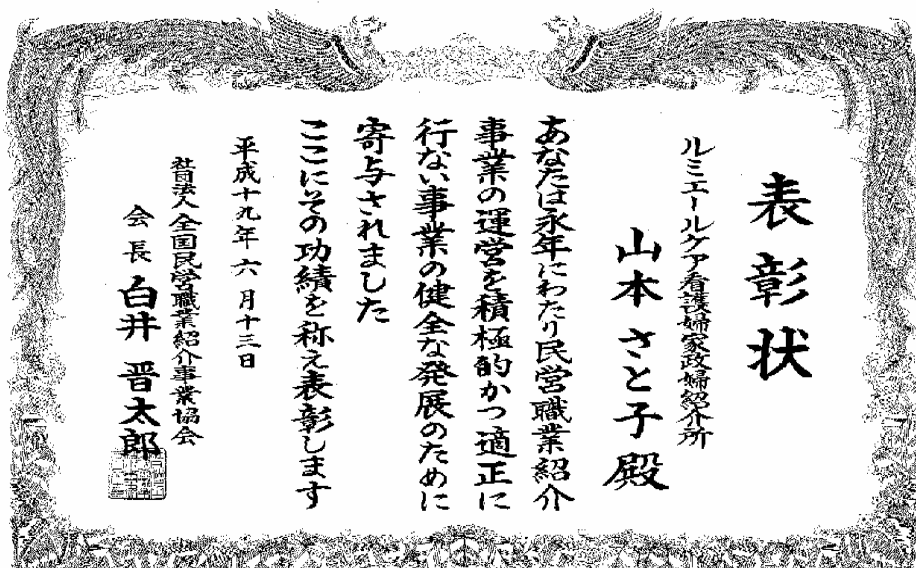 表彰状
ルミエールケア看護婦家政婦紹介所
山本さと子殿
あなたは永年にわたり民営職業紹介
事業の運営を積極的かつ適正に
行ない事業の健全な発展のために
寄与されました
ここにその功績を称え表彰します
平成十九年六月十三日
社団法人全国民営職業紹介事業協会
会長 白井晋太郎